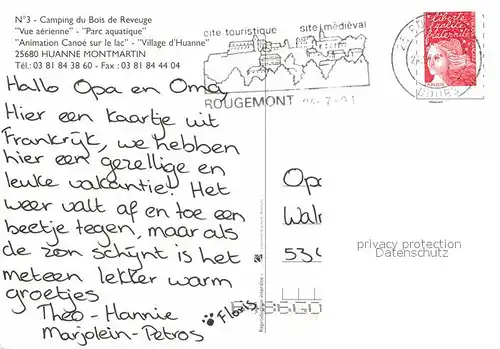 N°3 - Camping du Bois de Reveuge
"Vue aérienne" - "Parc aquatique"
"Animation Canoé sur le lac" - "Village d'Huanne"
25680 HUANNE MONTMARTIN
Tél.: 03 81 84 38 60 - Fax : 03 81 84 44 04
cite touristique site médiéval
ROUGEMONT
Liberté
égalité
fraternité
Hallo Opa en Oma,
Hier een kaartje uit
Frankrijk, we hebben
hier een gezellige en
leuke vakantie! Het
weer valt af en toe een
beetje tegen, maar als
de zon schijnt is het
meteen lekker warm
groetjes
Theo - Hannie
Marjolein - Petros
Floris
Op
Wal
534
privacy protection
Datenschutz